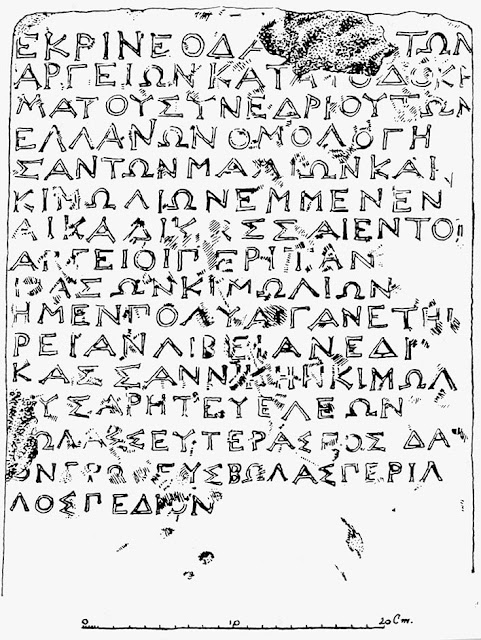 ΕΚΡΙΝΕΟΔΑ ΤΩΝ
ΑΡΓΕΙΩΝΚΑΤΑΤΟΔΟΚΗ
ΜΑΤΟΥΣΥΝΕΔΡΙΟΥΤΩΝ
ΕΛΛΑΝΩΝΟΜΟΛΟΓΗ
ΣΑΝΤΩΝΜΑΛΙΩΝΚΑΙ
ΚΙΜΩΛΙΩΝΕΜΜΕΝΕΝ
ΑΙΚΑΔΙΚΑΣΣΑΙΕΝΤΟΙ
ΑΡΓΕΙΟΙΠΕΡΙΤΑΝ
ΑΣΩΝΚΙΜΩΛΙΩΝ
ΗΜΕΝΠΟΛΥΑΙΓΑΝΕΤΗΙ
ΡΕΙΑΝΛΙΒΕΙΑΝΕΔΙ
ΚΑΣΣΑΝΝΙΚΗΝΚΙΜΩΛ
ΥΣΑΡΗΤΕΥΕΛΕΩΝ
ΩΛΑΣΣΕΥΤΕΡΑΣΠΟΣ ΔΑ
ΟΝΓΡΟ ΕΥΣΒΩΛΑΣΠΕΡΙΛ
ΛΟΣΠΕΔΙΟΝ
0 10 20 Cm.